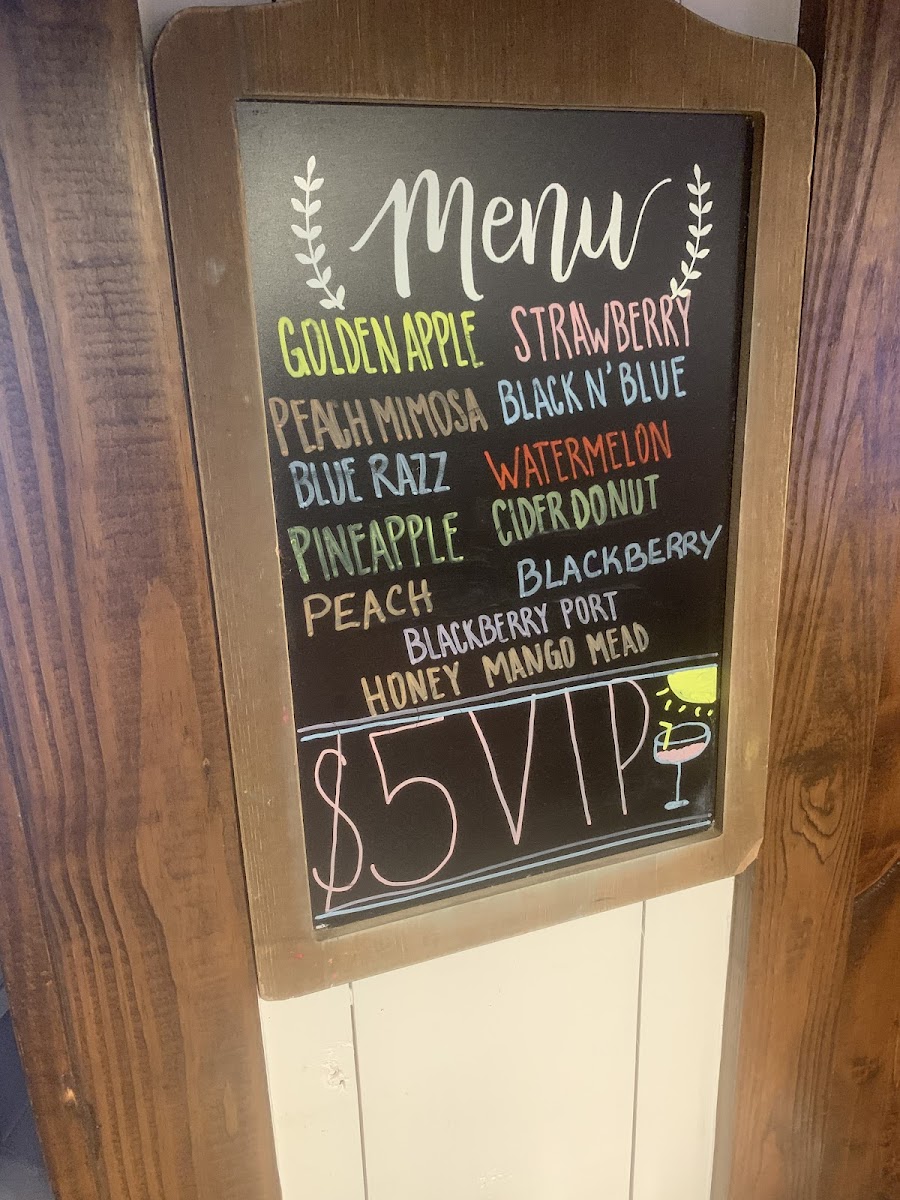 Menu
GOLDEN APPLE STRAWBERRY
PEACH MIMOSA BLACK N' BLUE
BLUE RAZZ WATERMELON
PINEAPPLE CIDER DONUT
PEACH BLACKBERRY
BLACKBERRY PORT
HONEY MANGO MEAD
$5 VIP